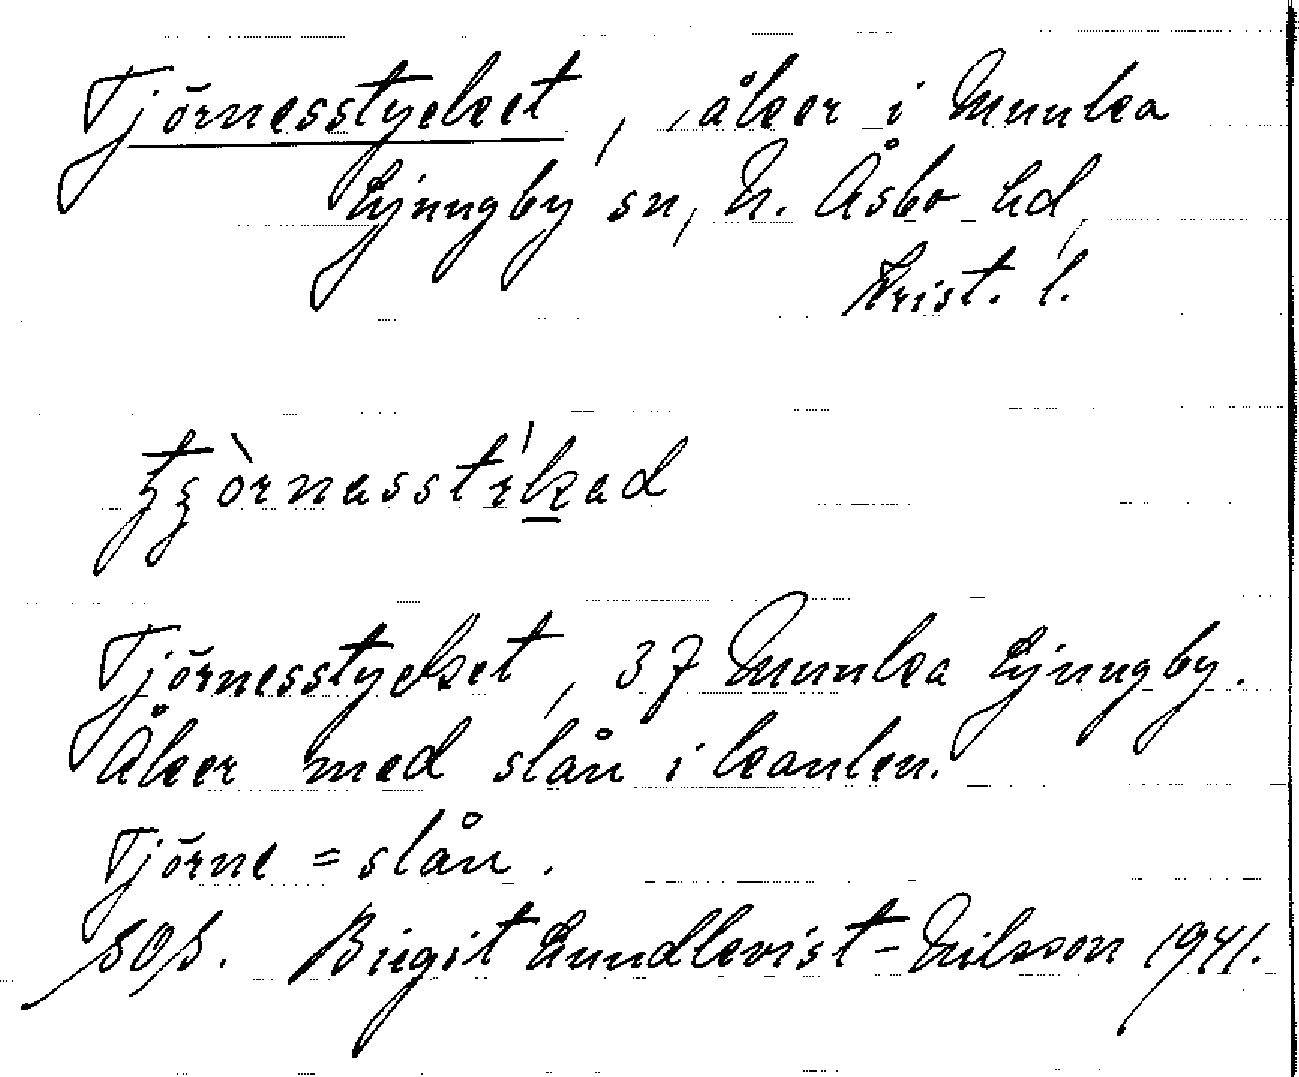 Tjörnesstycket, åker i Munka
Ljungby sn, N. Åsbo hd,
Krist. l.
Tjörnesstycket, 37 Munka Ljungby.
Åker med slån i kanten.
Tjörne = slån.
Birgit Lundkvist-Nilsson 1941.